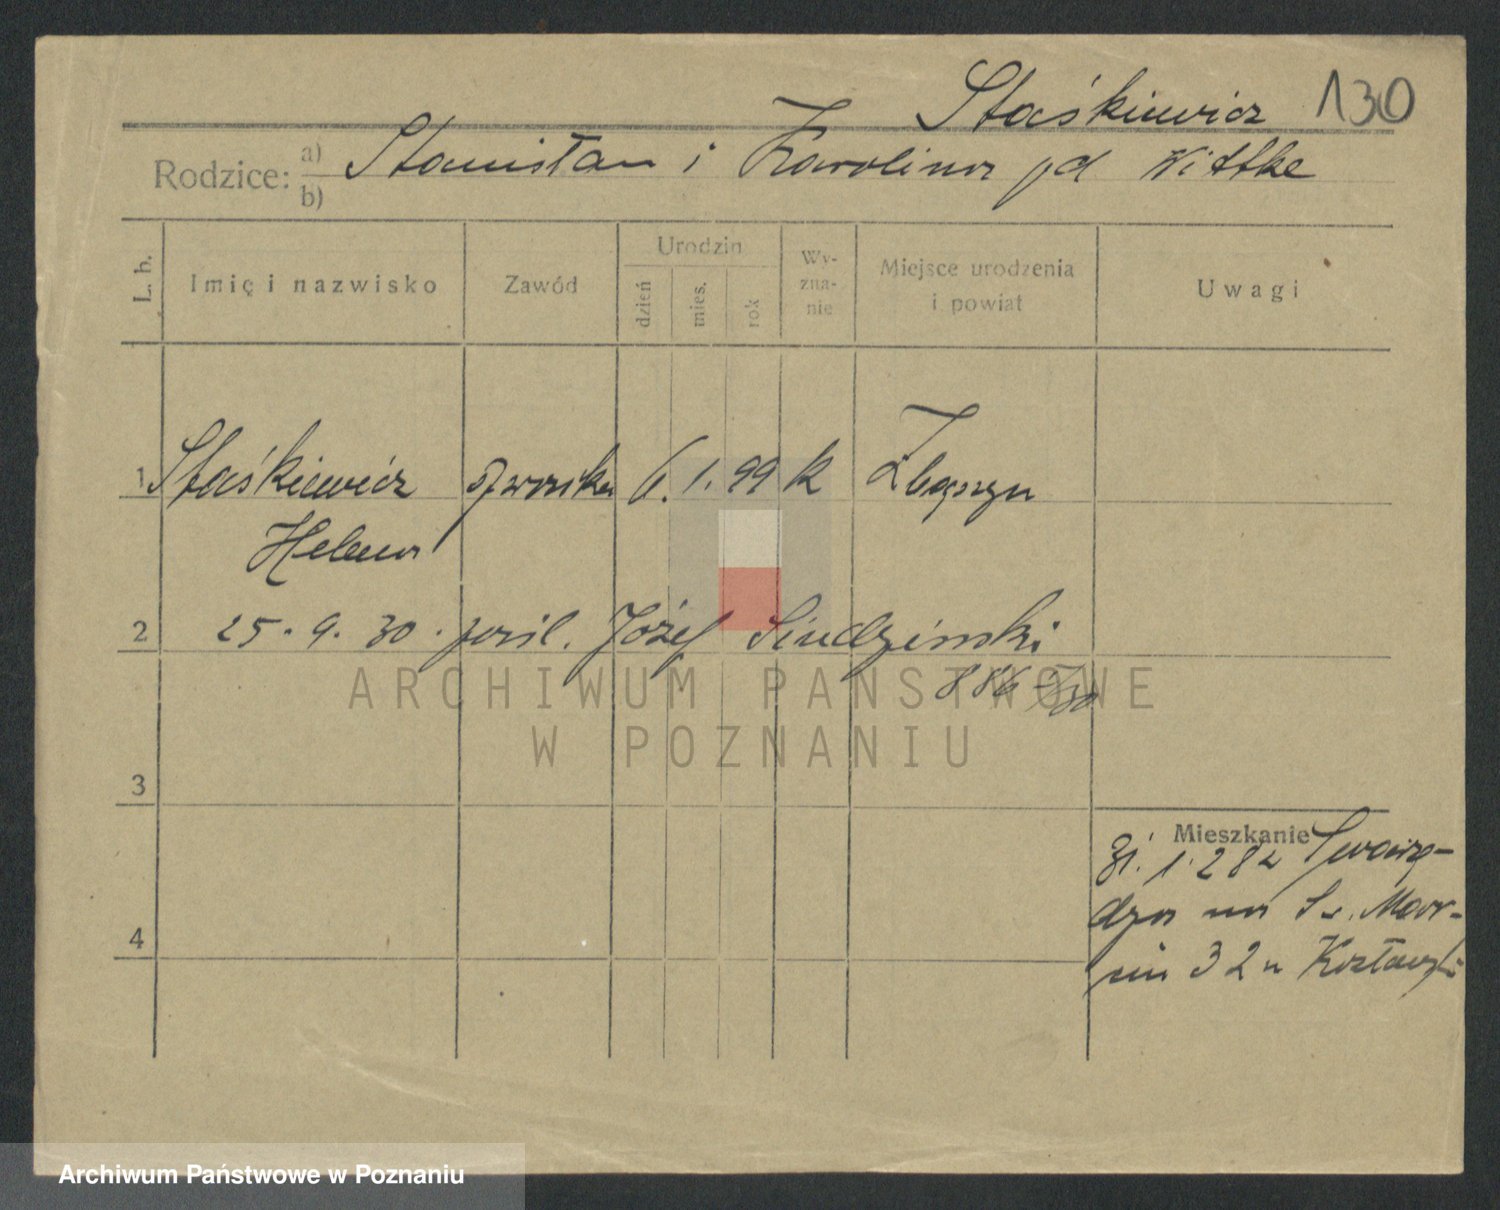 Staśkiewicz 130
Rodzice: a) Stanisław i Karolina Wittke
b)
L. b.
Imię i nazwisko
Zawód
Urodzin
dzień
mies.
rok
Wy-
zna-
nie
Miejsce urodzenia
i powiat
Uwagi
1 Staśkiewicz 6. 1. 99 k Zbąszyn
Helena
2 25. 9. 30. Józef Siudziński
886
3
Mieszkanie
31. 1. 28 z Swarzę-
dza na Św. Mar-
cin 32
4
ARCHIWUM PAŃSTWOWE
W POZNANIU
Archiwum Państwowe w Poznaniu